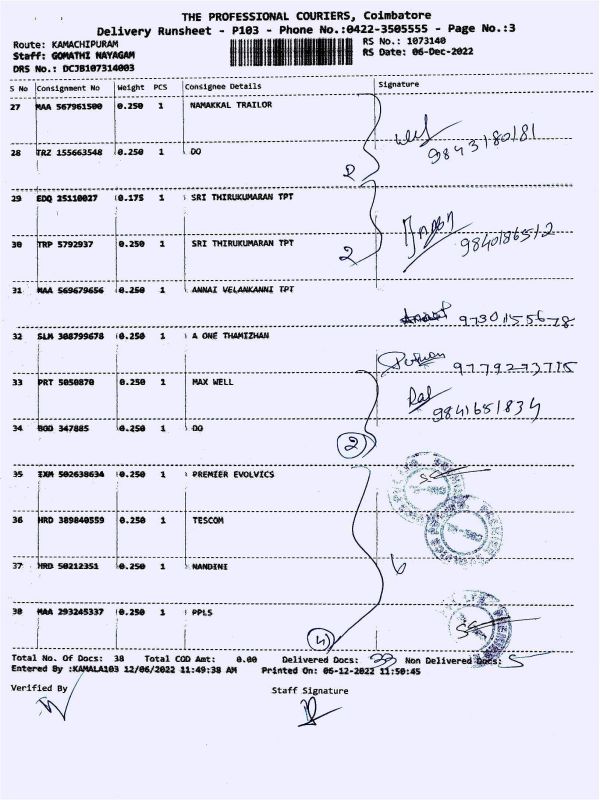 THE PROFESSIONAL COURIERS, Coimbatore
Delivery Runsheet - P103 - Phone No.:0422-3505555 - Page No.:3
Route: KAMACHIPURAM RS No.: 1073140
Staff: GOMATHI NAYAGAM RS Date: 06-Dec-2022
DRS No.: DCJB107314003
S No Consignment No Weight PCS Consignee Details Signature
27 MAA 567961500 0.250 1 NAMAKKAL TRAILOR
9843180181
28 TRZ 155663548 0.250 1 DO
2
29 EDQ 25110027 0.175 1 SRI THIRUKUMARAN TPT
9840186512
30 TRP 5792937 0.250 1 SRI THIRUKUMARAN TPT
2
31 MAA 569679656 0.250 1 ANNAI VELANKANNI TPT
9730155678
32 SLM 308799678 0.250 1 A ONE THAMIZHAN
9779273775
33 PRT 5050870 1 0.250 1 MAX WELL
9841651834
34 BOD 347885 0.250 1 DO
2
35 IXM 502638634 0.250 1 PREMIER EVOLVICS
36 HRD 389840559 0.250 1 TESCOM
37 HRD 50212351 0.250 1 NANDINI
6
38 MAA 293245337 0.250 1 PPLS
4
Total No. Of Docs: 38 Total COD Amt: 0.00 Delivered Docs: 33 Non Delivered Docs: 5
Entered By :KAMALA103 12/06/2022 11:49:38 AM Printed On: 06-12-2022 11:50:45
Verified By Staff Signature